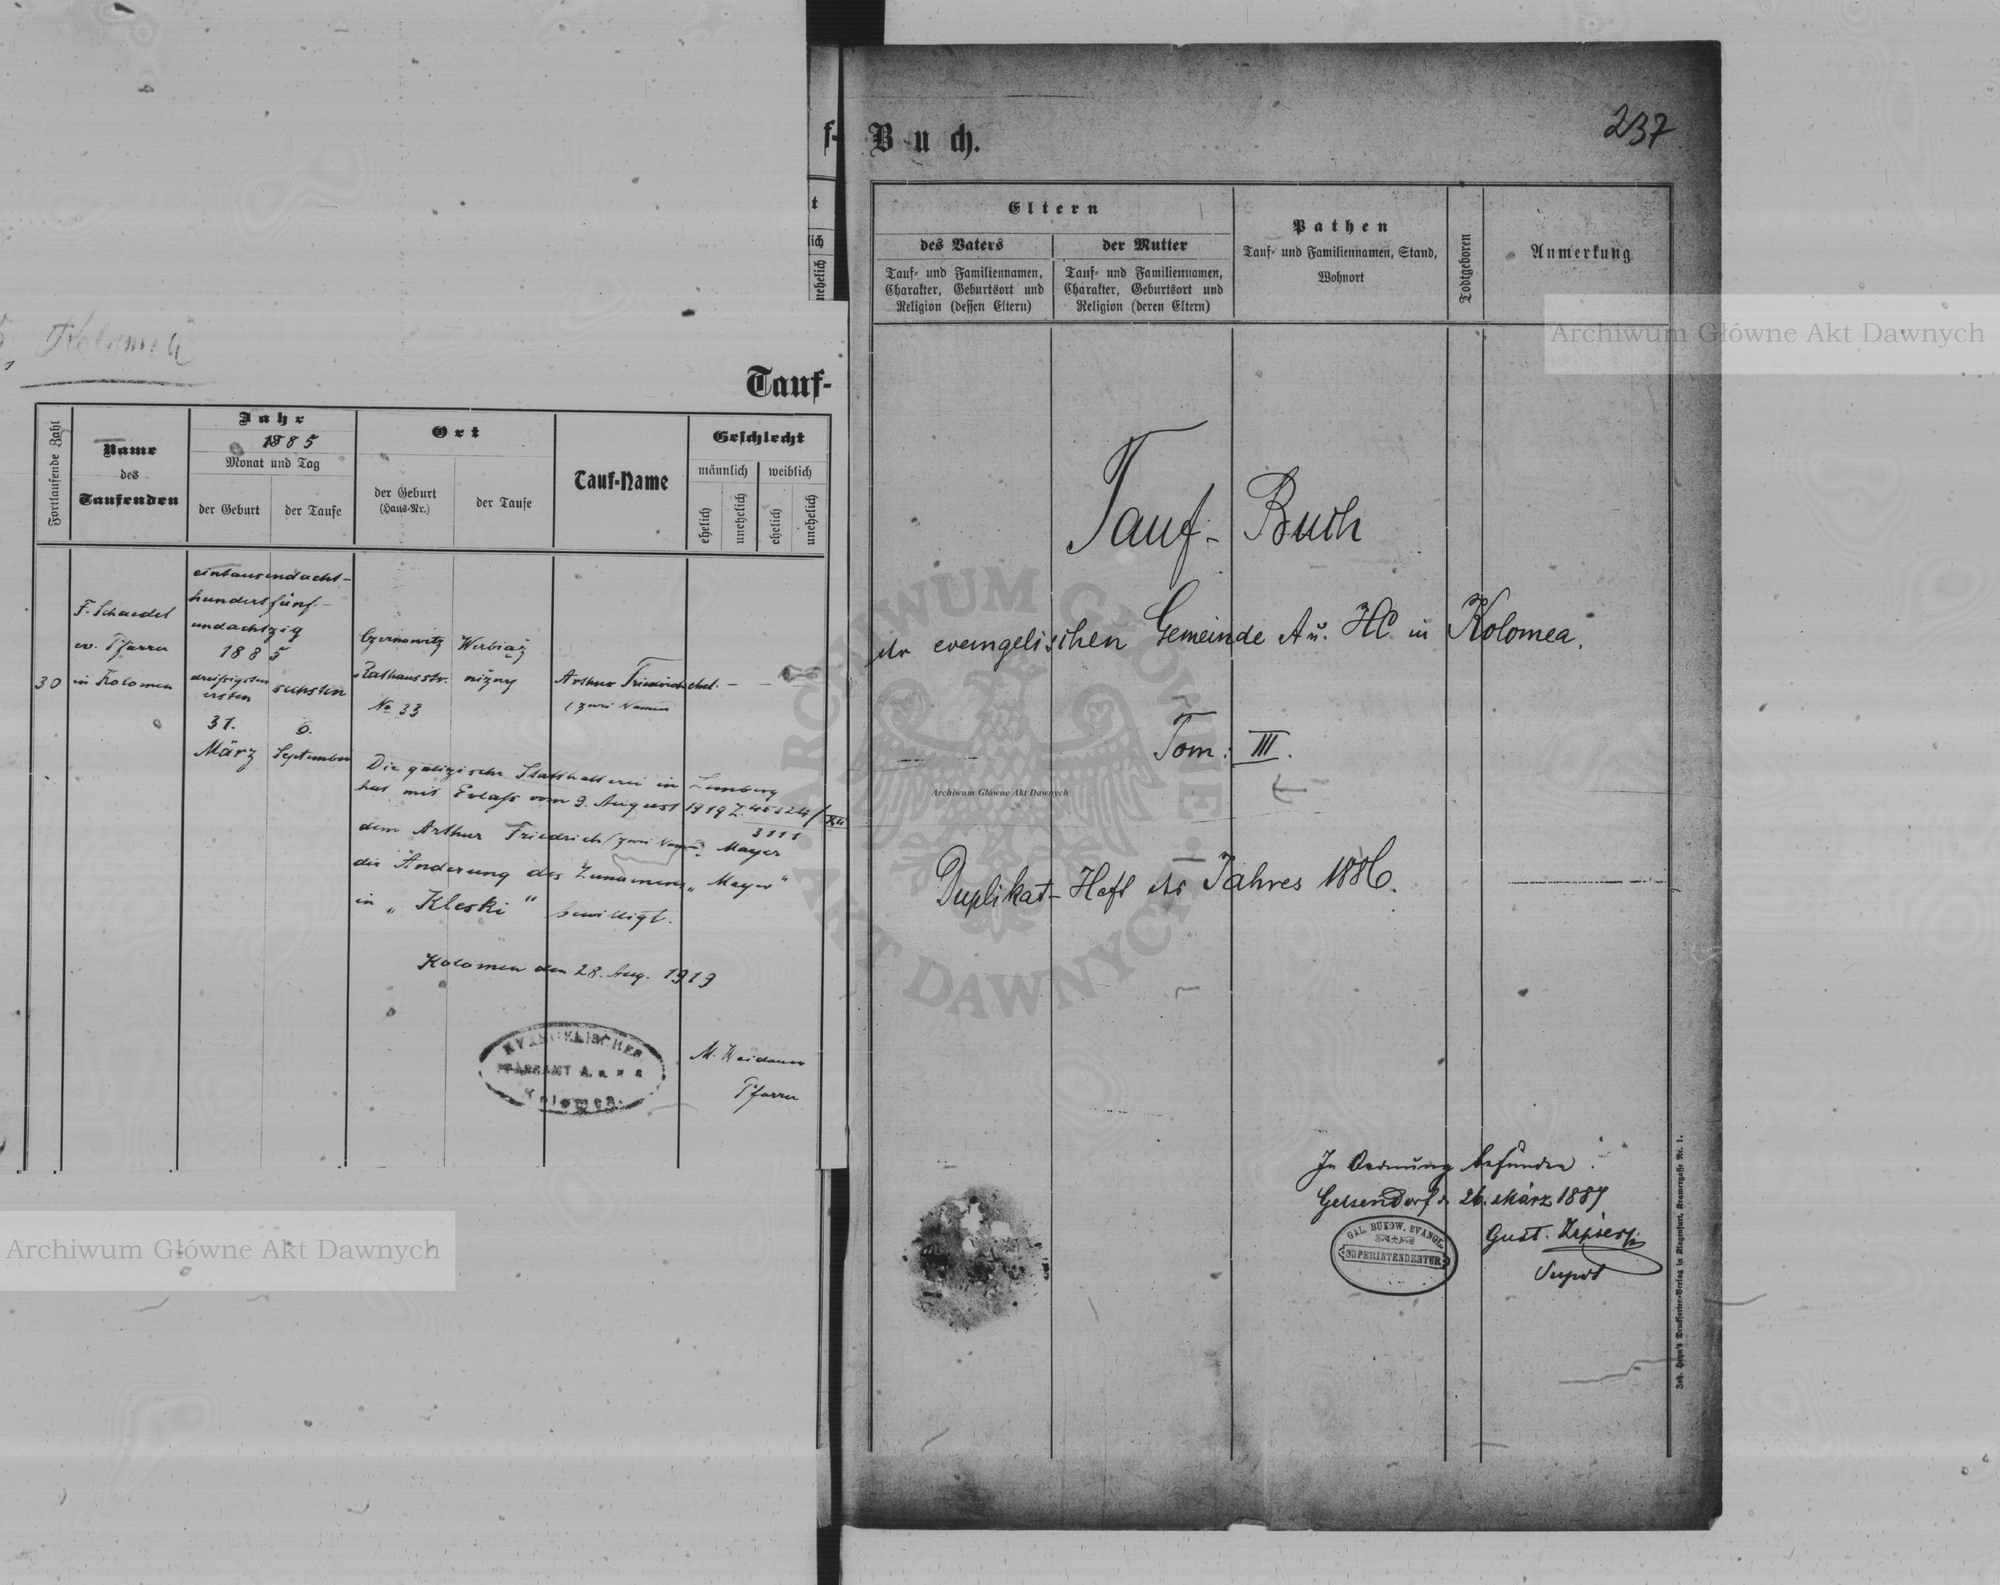 Kolomea
Tauf-
Fortlaufende Zahl
Name
des
Taufenden
Jahr
1885
Monat und Tag
der Geburt
der Taufe
Ort
der Geburt
(Haus-Nr.)
der Taufe
Tauf-Name
Geschlecht
männlich
weiblich
ehelich
unehelich
ehelich
unehelich
30
F. Schaedel
ev. Pfarrer
in Kolomea
eintausendacht-
hundertfünf-
undachtzig
1885
dreißigsten
ersten
31.
März
sechsten
6.
September
Czernowitz
Rathausstr.
No 33
Werbiąż
niżny
Arthur Friedrich
(zwei Namen
ehel. -
Die galizische Statthalterei in Lemberg
hat mit Erlaß vom 9. August 1919 Z. 45324/XII
3111
dem Arthur Friedrich (zwei Namen) Mayer
die Änderung des Zunamens „Mayer“
in „Kleski“ bewilligt.
Kolomea den 28. Aug. 1919
EVANGELISCHES
PFARRAMT A. u. H. B.
Kolomea.
M. Weidauer
Pfarrer
f-
t
lich
unehelich
Buch.
237
Eltern
des Vaters
Tauf- und Familiennamen,
Charakter, Geburtsort und
Religion (dessen Eltern)
der Mutter
Tauf- und Familiennamen,
Charakter, Geburtsort und
Religion (deren Eltern)
Pathen
Tauf- und Familiennamen, Stand,
Wohnort
Todtgeboren
Anmerkung
Tauf- Buch
der evangelischen Gemeinde A u. HC in Kolomea.
Tom: III.
Duplikat-Heft des Jahres 1886.
In Ordnung befunden.
Gelsendorf d. 26. März 1887
GAL. BUKOW. EVANGL.
SUPERINTENDENTUR
Gust.
Supdt
Joh. Heyn's Drucksorten-Verlag in Klagenfurt, Kramergasse Nr. 1.
Archiwum Główne Akt Dawnych
Archiwum Główne Akt Dawnych
Archiwum Główne Akt Dawnych
ARCHIWUM GŁÓWNE · AKT DAWNYCH ·